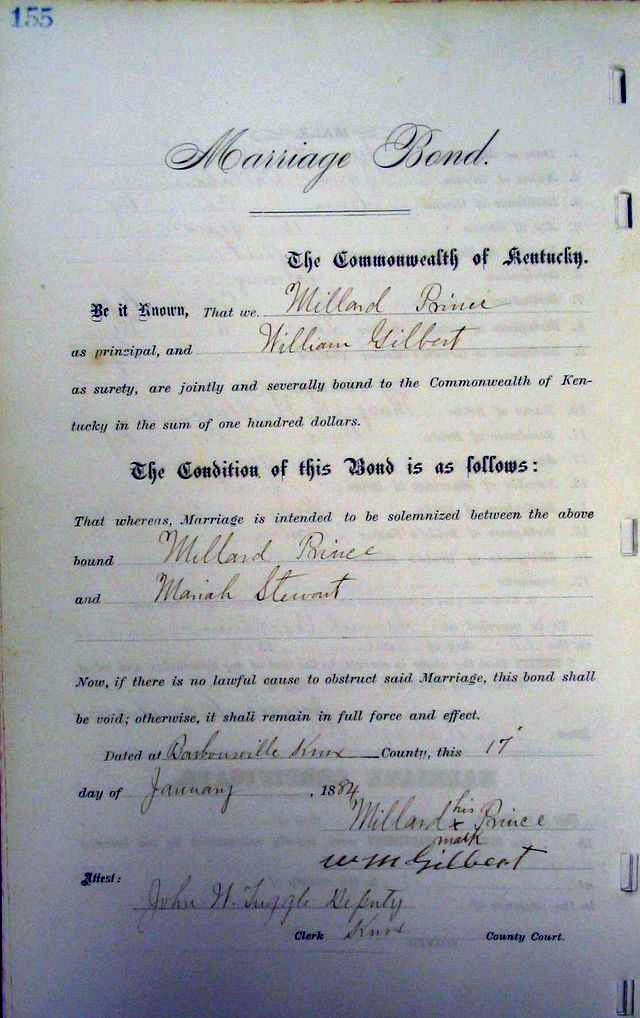 155
Marriage Bond.
The Commonwealth of Kentucky.
Be it Known, That we. Millard Prince
as principal, and William Gilbert
as surety, are jointly and severally bound to the Commonwealth of Ken-
tucky in the sum of one hundred dollars.
The Condition of this Bond is as follows:
That whereas, Marriage is intended to be solemnized between the above
bound Millard Prince
and Mariah Stewart
Now, if there is no lawful cause to obstruct said Marriage, this bond shall
be void; otherwise, it shall remain in full force and effect.
Dated at Barbourville Knox County, this 17"
day of January, 1884
Millard his x mark Prince
Wm Gilbert
Attest:
John W. Tuggle Deputy
Clerk Knox County Court.